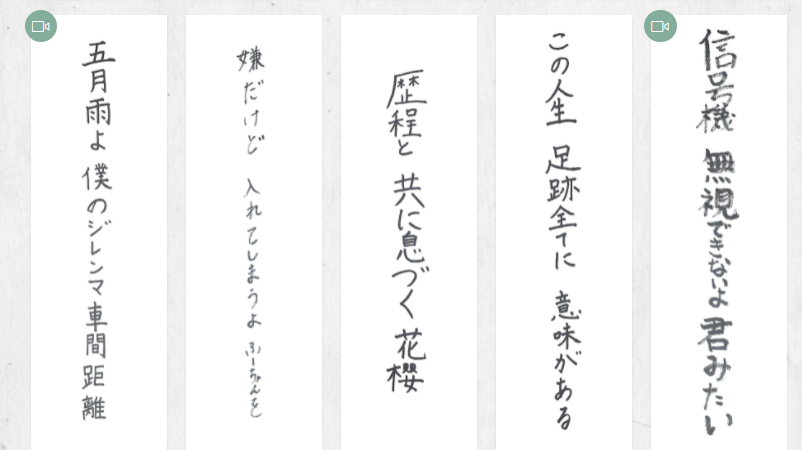 五月雨よ 僕のジレンマ 車間距離
嫌だけど 入れてしまうよ ふーちゃんを
歴程と 共に息づく 花櫻
この人生 足跡全てに 意味がある
信号機 無視できないよ 君みたい